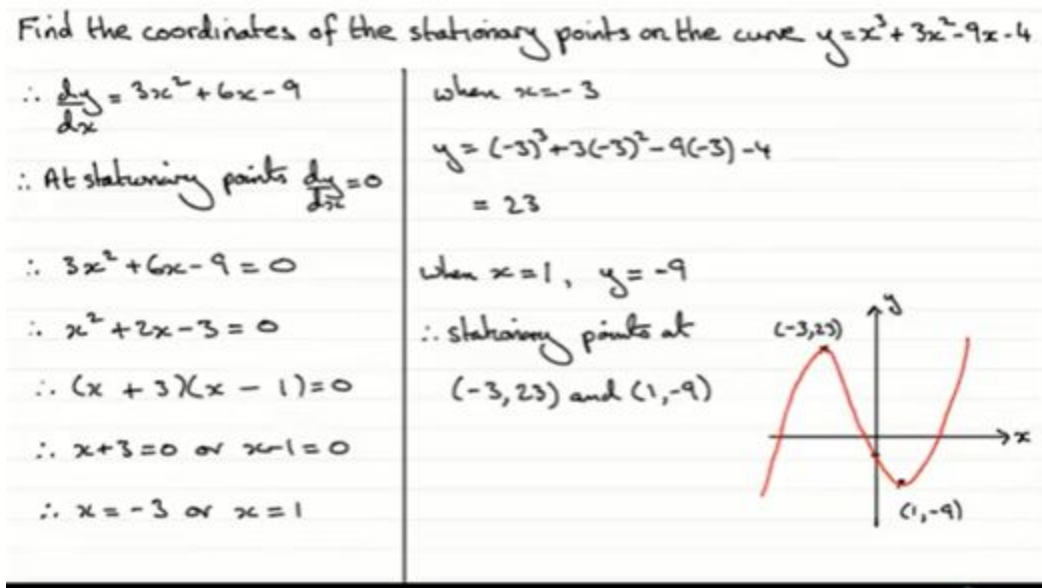 Find the coordinates of the stationary points on the curve y=x³+3x²-9x-4
∴ dy/dx = 3x²+6x-9
∴ At stationary points dy/dx=0
∴ 3x²+6x-9=0
∴ x²+2x-3=0
∴ (x + 3)(x - 1)=0
∴ x+3=0 or x-1=0
∴ x=-3 or x=1
when x=-3
y=(-3)³+3(-3)²-9(-3)-4
= 23
when x=1, y=-9
∴ stationary points at
(-3,23) and (1,-9)
y
(-3,23)
x
(1,-9)